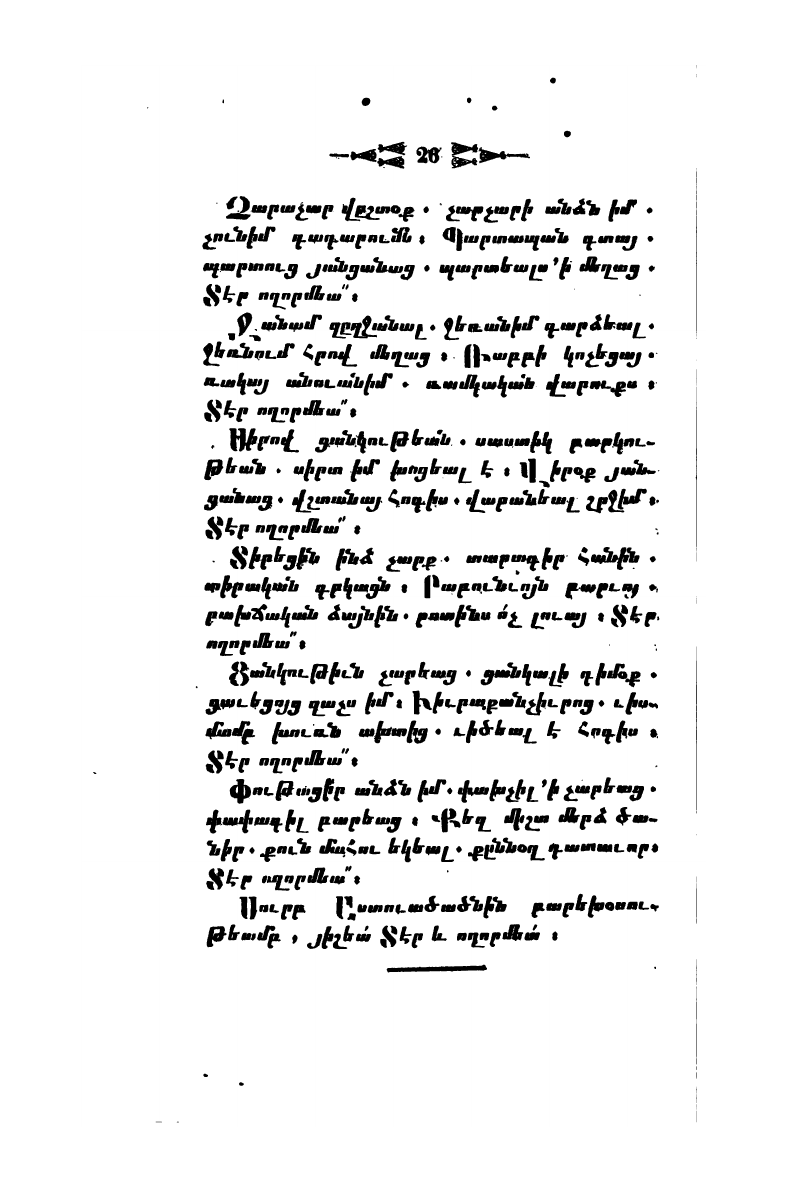 26
Չարաչար վըշտօք · չարչարի անձն իմ ·
չունիմ գադարումն ։ Պարտապան գտայ ·
պարտուց յանցանաց · պարտեալս ՚ի մեղաց ·
Տէր ողորմեա՛՛ ։
Ջանամ զըղջանալ · ջեռանիմ գարձեալ ·
ջեռնում հրով մեղաց ։ Ռաբբի կոչեցայ ·
ռակայ անուանիմ · ռամկական վարուքս ։
Տէր ողորմեա՛՛ ։
Սիրով ցանկութեան · սաստիկ բարկու֊
թեան · սիրտ իմ խոցեալ է ։ Վիրօք յան֊
ցանաց · վշտանայ հոգիս · վարանեալ շրջիմ ։
Տէր ողորմեա՛՛ ։
Տիրեցին ինձ չարք · տարտգիր հանին ·
տիրական գրկացն ։ Րաբունւոյն բարւոյ ·
բախճական ձայնին · բռտինս ո՛չ լուայ ։ Տէր
ողորմեա՛՛ ։
Ցանկութիւն չարեաց · ցանկալի դիմօք ·
ցաւեցոյց զաչս իմ ։ Խիւրաքանչիւրոց · ւիս֊
մամբ խուռն ախտից · ւիծեալ է հոգիս ։
Տէր ողորմեա՛՛ ։
Փութացիր անձն իմ · փախչիլ ՚ի չարեաց ·
փափագիլ բարեաց ։ Քեզ միշտ մերձ ծա֊
նիր · քուն մահու եկեալ · քըննօղ դատաւոր ։
Տէր ողորմեա՛՛ ։
Սուրբ Աստուածածնին բարեխօսու֊
թեամբ , յիշեա՛ Տէր և ողորմեա՛ ։